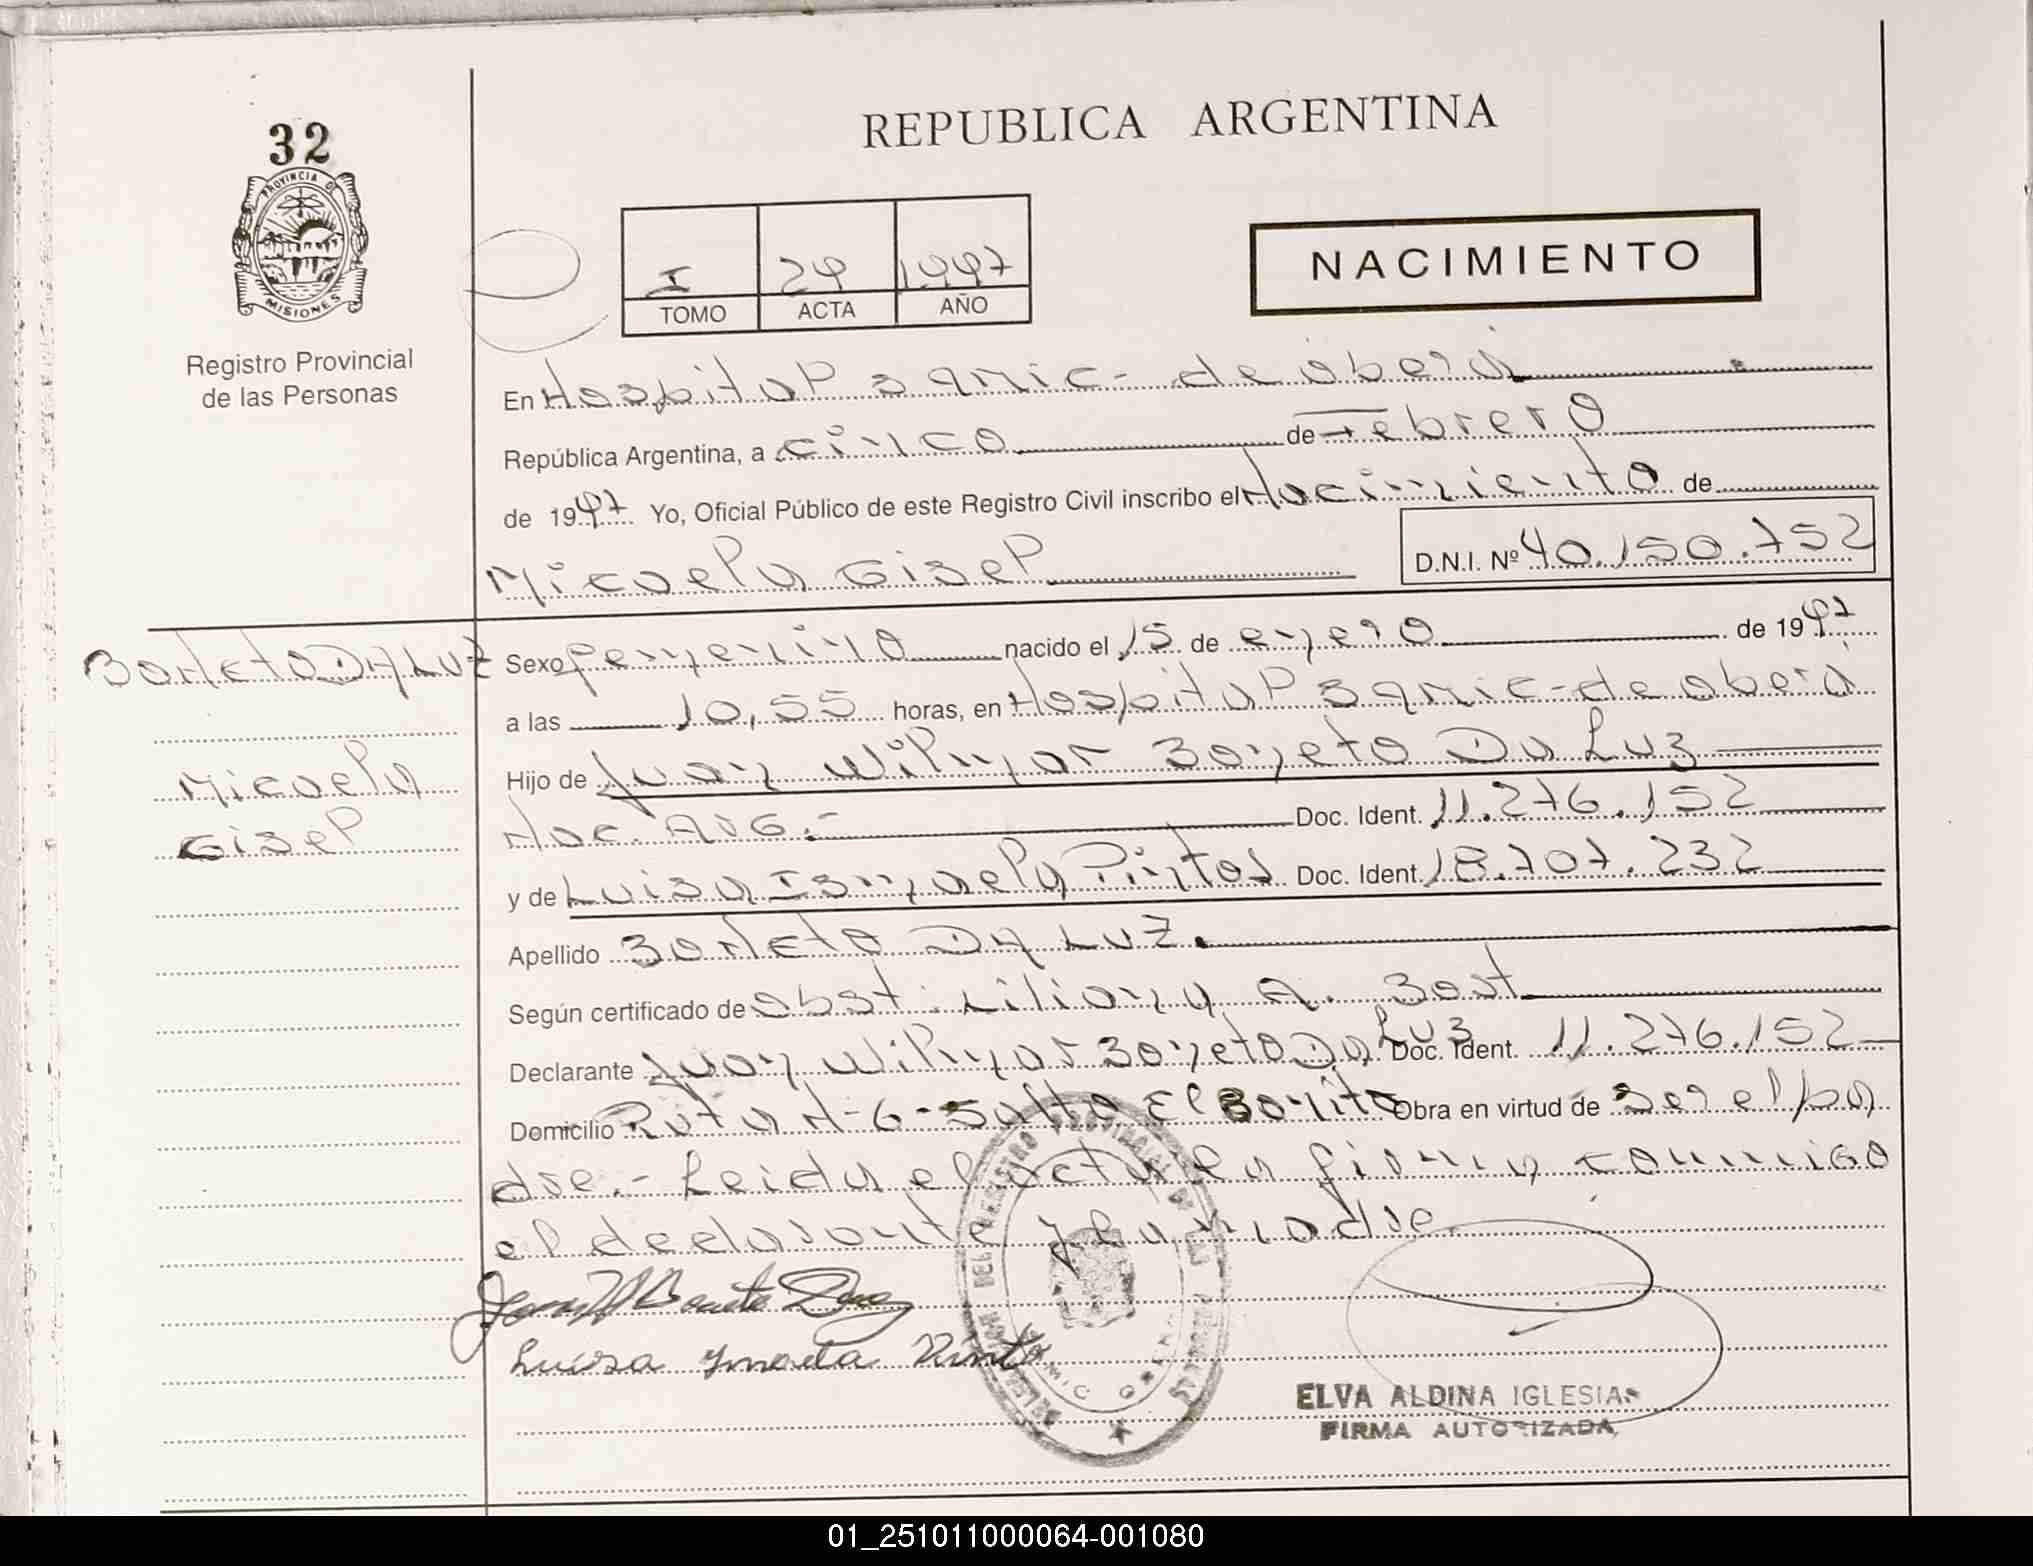 REPUBLICA ARGENTINA
32
PROVINCIA DE
MISIONES
Registro Provincial
de las Personas
I 29 1.997
TOMO ACTA AÑO
NACIMIENTO
En Hospital Samic - de oberá
República Argentina, a cinco de Febrero
de 1997 Yo, Oficial Público de este Registro Civil inscribo el Nacimiento de
Micaela Gisel D.N.I. Nº 40.150.752
Borneto DA LUZ
Micaela
Gisel
Sexo femenino nacido el 15 de enero de 1997
a las 10,55 horas, en Hospital Samic - de oberá
Hijo de Juan Wilmar Borneto Da Luz
Nac. Arg.- Doc. Ident. 11.276.152
y de Luisa Ismaela Pintos Doc. Ident. 18.707.232
Apellido DA LUZ.
Según certificado de obst. Liliana A.
Declarante Juan Wilmar Da Luz Doc. Ident. 11.276.152
Domicilio Ruta N-6- Salto El Bonito Obra en virtud de ser el pa
dre.- Leida el acta la firma conmigo
el declarante y la madre
Luisa Pinto
DELEGACION DEL REGISTRO PROVINCIAL DE LAS PERSONAS
ELVA ALDINA IGLESIAS
FIRMA AUTORIZADA
01_251011000064-001080